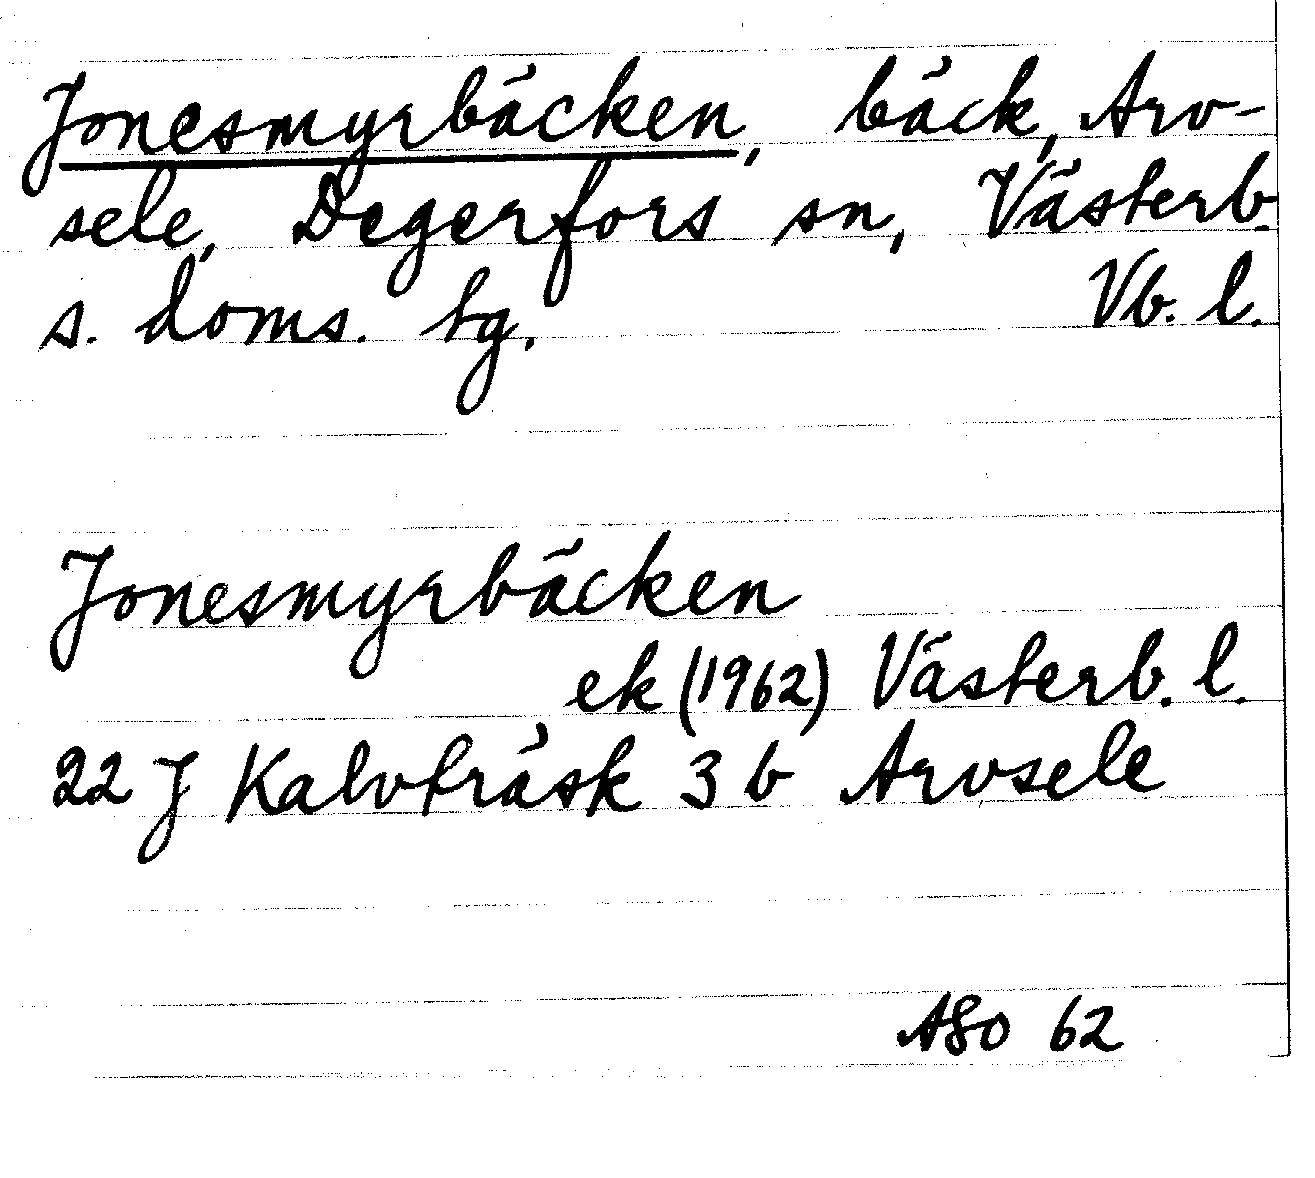 Jonesmyrbäcken, bäck, Arv-
sele, Degerfors sn, Västerb.
s. doms. tg. Vb. l.
Jonesmyrbäcken
ek (1962) Västerb. l.
22 J Kalvträsk 3 b Arvsele
ASO 62